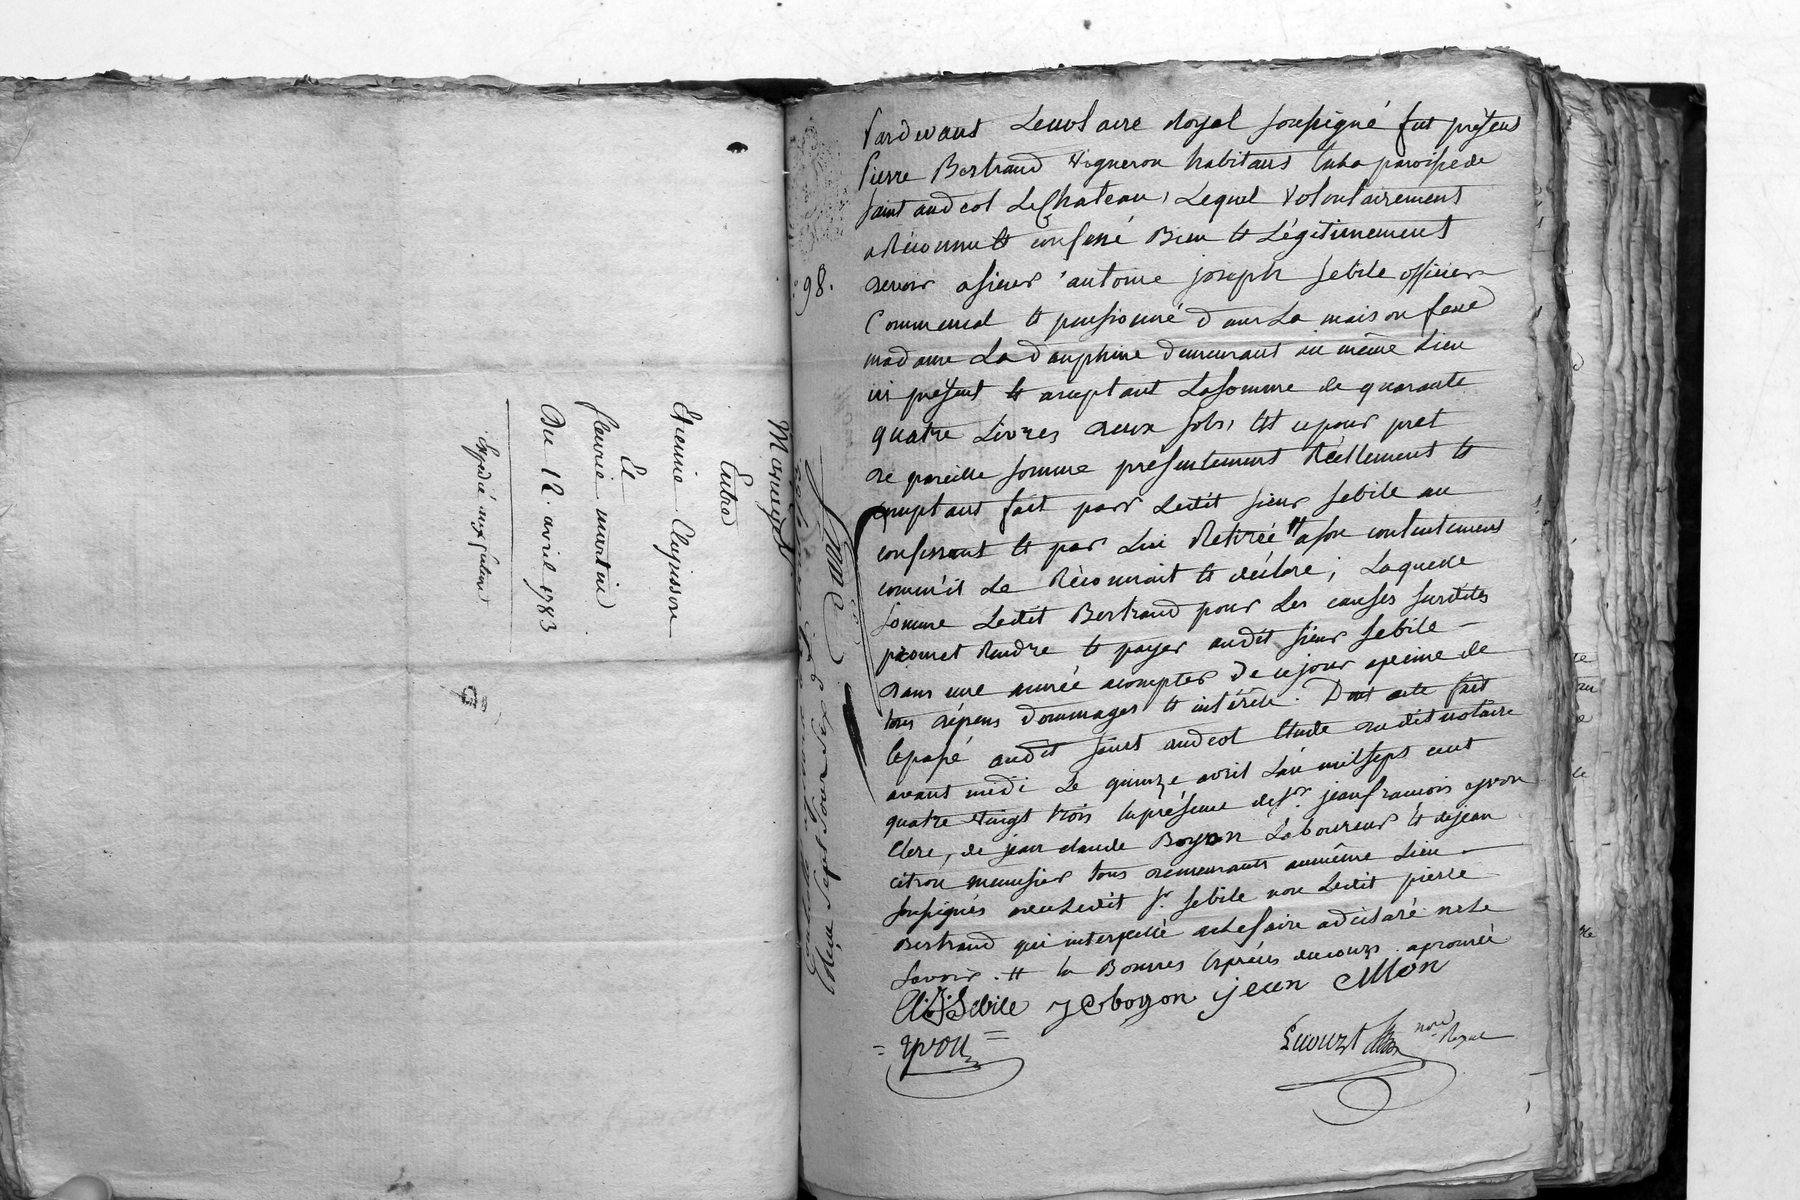 Mariage
Entre
Etienne Clupisson
Et
fleurie martin
Du 12 avril 1783
Expedié aux futurs
98.
Pardevant Le notaire Royal soussigné fut présent
Pierre Bertrand vigneron habitant en la paroisse de
saint andeol Le Chateau, Lequel volontairement
a Réconnu et confessé Bien et Légitimement
devoir a sieur antoine joseph Sebile officier
Commensal et pensionné dans La maison feue
madame La dauphine demeurant au même Lieu
ici présent et aceptant La somme de quarante
quatre Livres deux sols, Et ce pour pret
de pareille somme présentement Réellement et
comptant fait par Ledit sieur Sebile au
confessant et par Lui Retirée a son contentement
comm'il Le Réconnait et déclare; Laquelle
somme Ledit Bertrand pour Les causes susdites
promet Rendre et payer audit sieur Sebile
dans une année acompter de ce jour apeine de
tous dépens dommages et intérêts. Dont acte fait
Et passé audit saint andeol Etude dudit notaire
avant midi Le quinze avril L'an mil sept cent
quatre vingt trois En présence de sr. jean francois yvon
Clerc, de jean claude Boyon Laboureur et de jean
citron menusier tous demeurants au même Lieu
soussignés avec Ledit sr. Sebile non Ledit pierre
Bertrand qui interpellé de Le faire a déclaré ne Le
savoir. Et
A: J: Sebile J C boyon jean
yvon nore Royal